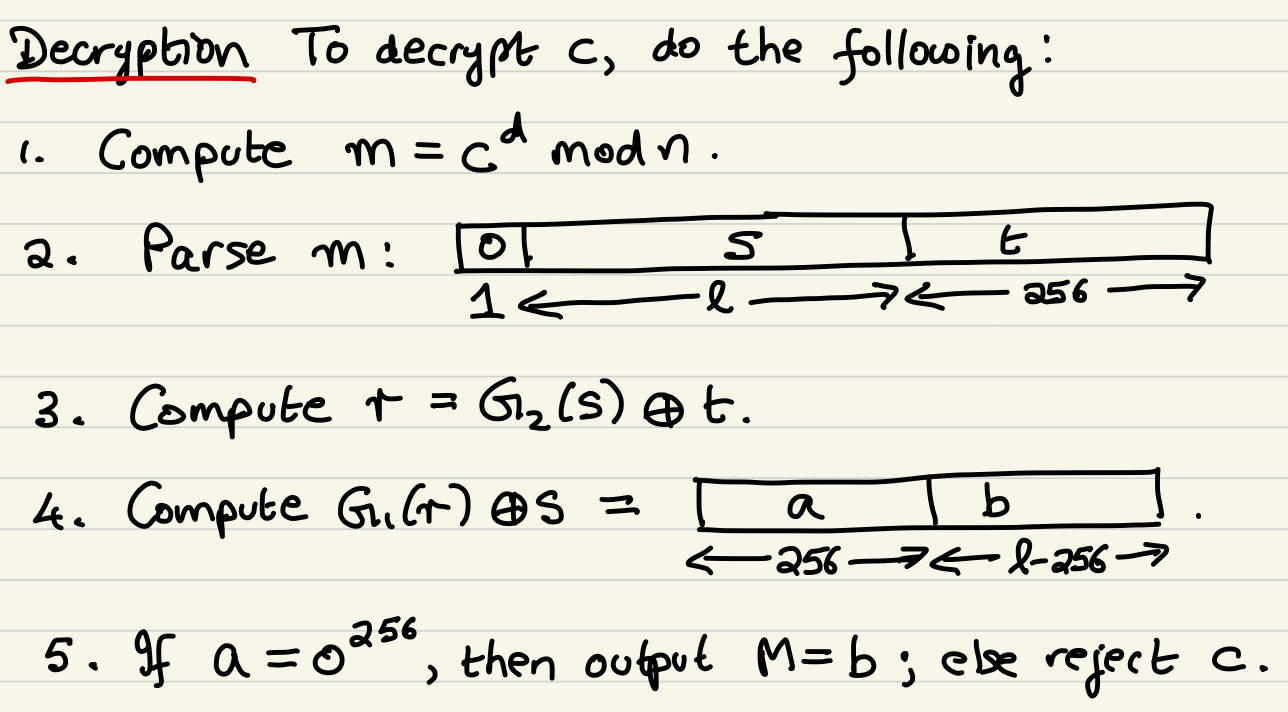 Decryption To decrypt c, do the following:
1. Compute m = c^d mod n.
2. Parse m: 0 s t
1 l 256
3. Compute r = G₂(s) ⊕ t.
4. Compute G₁(r) ⊕ s = a b .
256 l-256
5. If a = 0^256, then output M = b; else reject c.